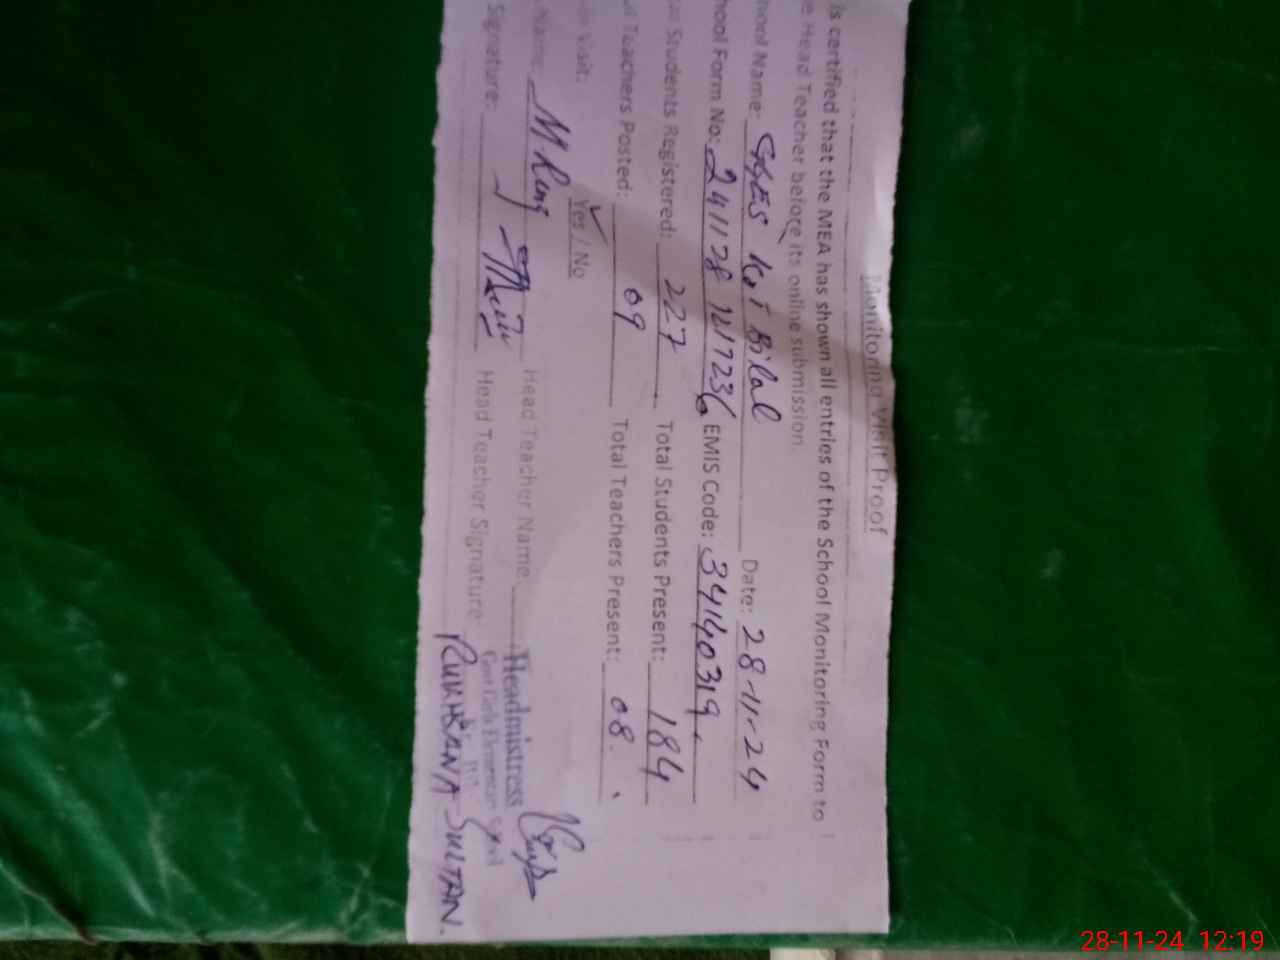 Monitoring Visit Proof
is certified that the MEA has shown all entries of the School Monitoring Form to
e Head Teacher before its online submission.
hool Name: GGES Kot Bilal Date: 28-11-24
hool Form No: 241128 121723 EMIS Code: 34140319
Students Registered: 227 Total Students Present: 184
l Teachers Posted: 09 Total Teachers Present: 08.
Visit: Yes / No
Name: M Head Teacher Name: Headmistress
Signature: Head Teacher Signature: Govt Girls Elementary School
RUKHSANA SULTAN.
28-11-24 12:19